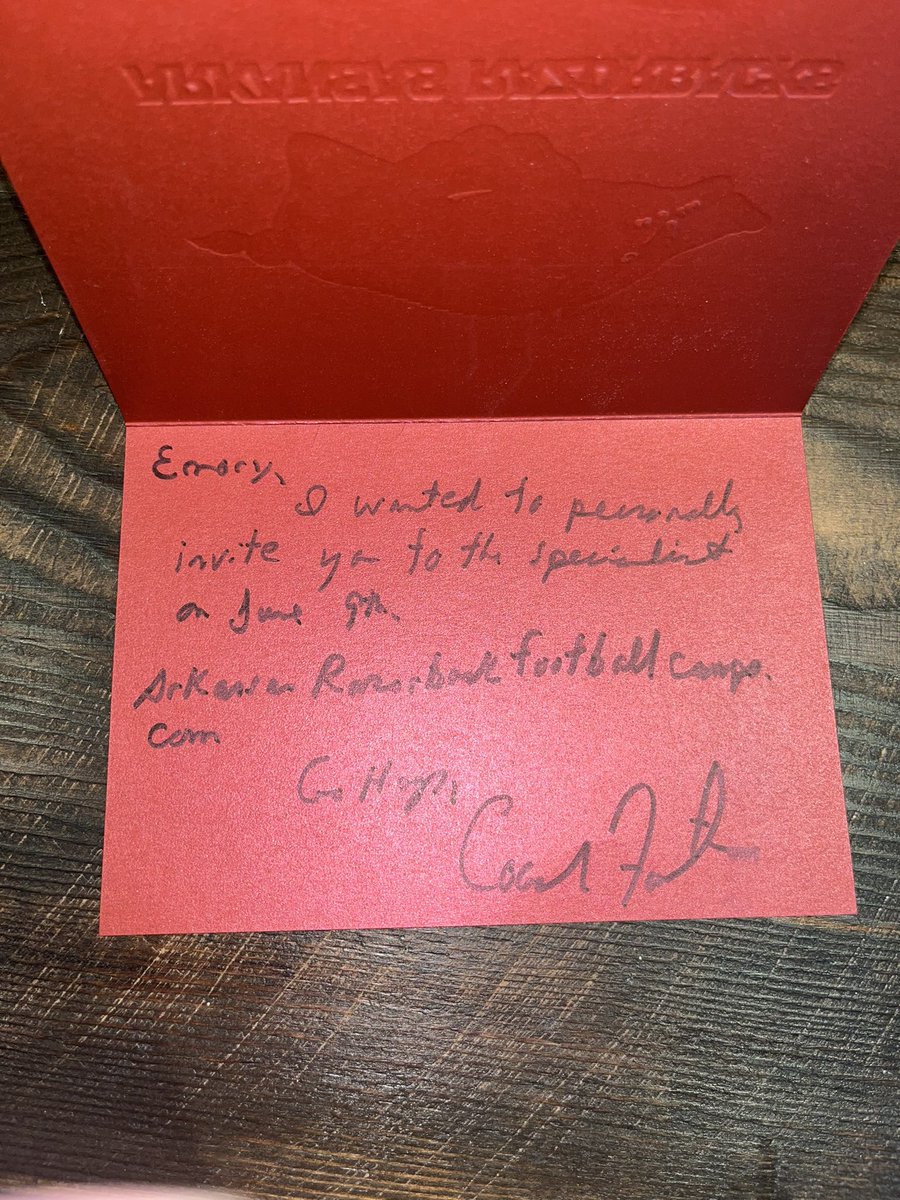 ARKANSAS RAZORBACKS
Emory,
I wanted to personally
invite you to the specialist
on June 9th.
Arkansas Razorback football camps.
com
Go Hogs,
Coach